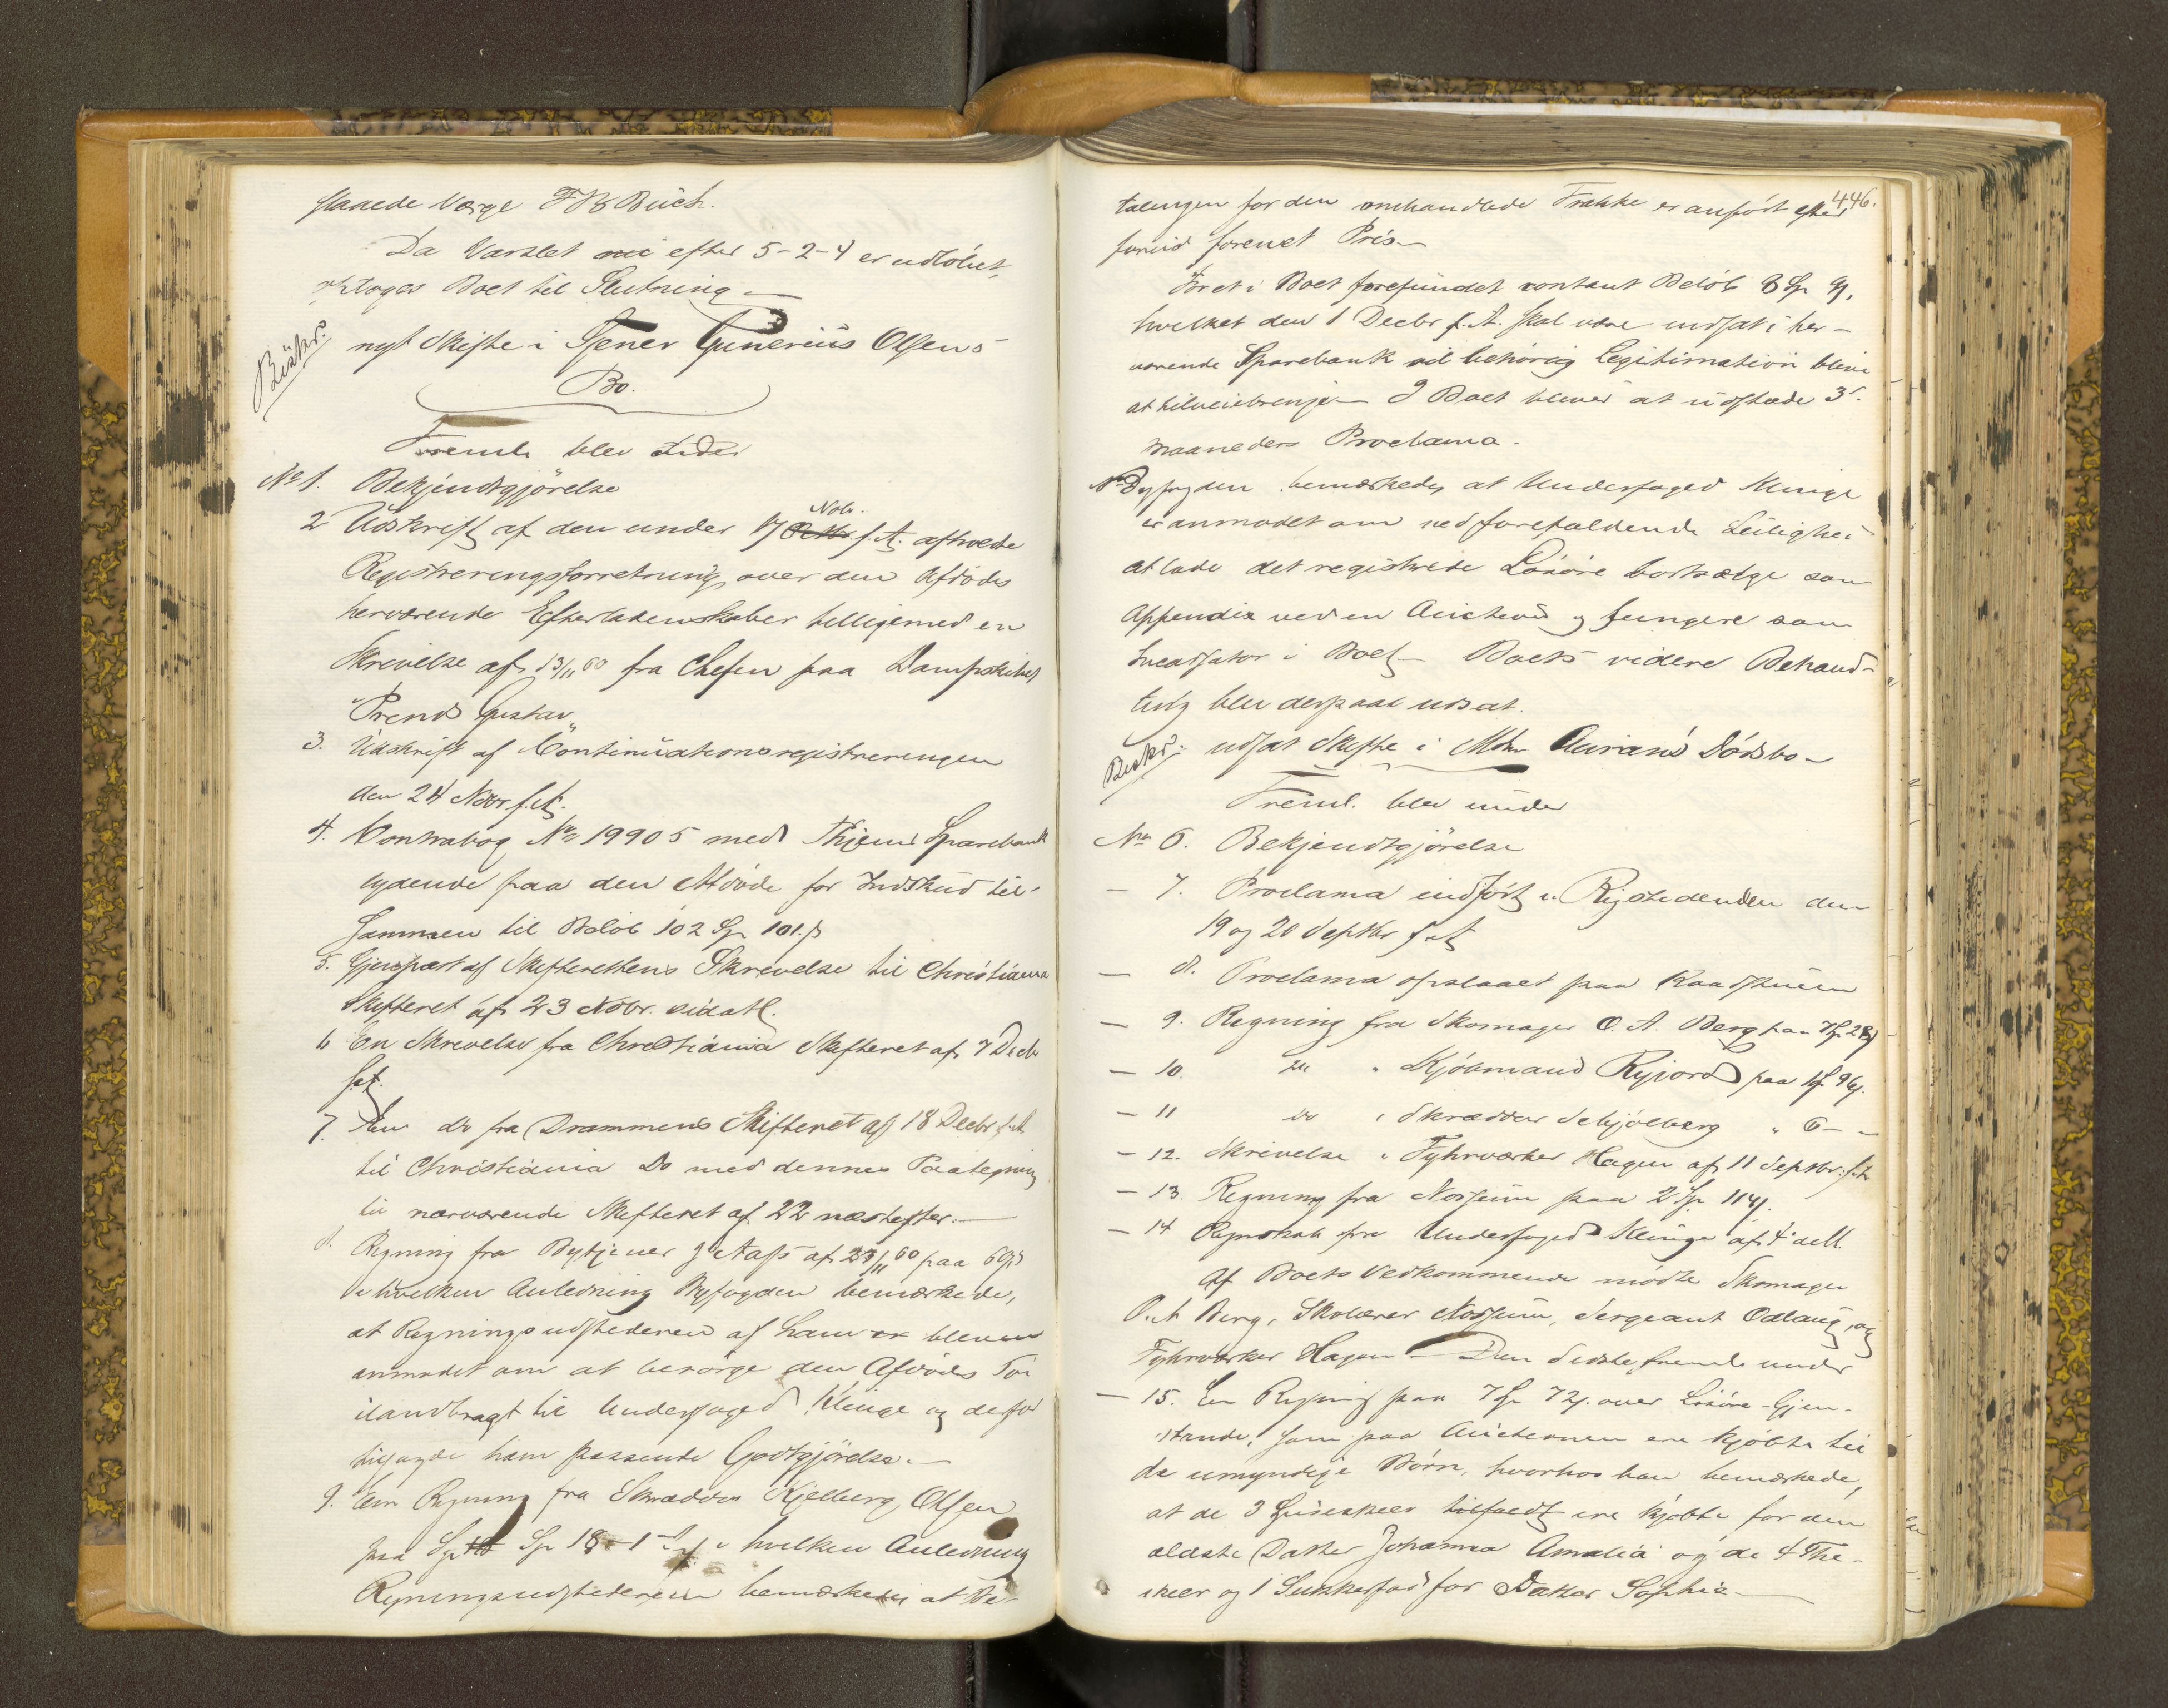 Værge F B Buch.
Da Varslet efter 5-2-4 er udløbet,
optoges Boet til Slutning
nyt Skifte i Tjener Gunerius Olsens
Bo.
Freml. blev under
No 1. Bekjendtgjörelse
2 Udskrift af den under 17 Novbr. f. A. afholdte
Registreringsforretning over den Afdödes
herværende Efterladenskaber tilligemed en
Skrivelse af 13/11 60 fra Chefen paa Dampskibet
"Prinds Gustav"
3. Udskrift af Continuationsregistreringen
den 24 Novbr. f. A.
4. Contrabog No 19905 med Thjems Sparebank
lydende paa den Afdöde for Indskud til-
sammen til Belöb 102 Sp 101 s
5. Gjenpart af Skifterettens Skrivelse til Christiania
Skifteret af 23 Novbr.
6 En Skrivelse fra Christiania Skifteret af 7 Decbr
f. A.
7. En do fra Drammens Skifteret af 18 Decbr f. A.
til Christiania Do med dennes Paategning
til nærværende Skifteret af 22 næstefter.
8. Regning fra Bytjener J. Aass af 23/11 60 paa 60 s
i hvilken Anledning Byfogden bemærkede,
at Regningsudstederen af ham er bleven
anmodet om at besörge den Afdödes Töi
ilandbragt til Underfoged Klinge og derfor
tilsagde ham passende Godtgjörelse.
9. En Regning fra Skrædder Kjelberg, Olsen
paa Sp 18-1- i hvilken Anledning
Regningsudstederen bemærkede, at Be-
446.
talingen for den omhandlede Frakke er anført efter
forud forenet Pris
For et i Boet forefundet contant Belöb 8 Sp
hvilket den 1 Decbr f. A. skal være indsat i her-
værende Sparebank vil behörig Legitimation blive
at tilveiebringe. I Boet bliver at udstæde 3
maaneders Proclama.
Byfogden bemærkede, at Underfoged Klinge
er anmodet om ved forefaldende Leilighed
at lade det registrerede Lösöre bortsælge som
Appendix ved en Auction og fungere som
Incassator i Boet. Boets videre Behand-
ling blev derpaa udsat.
udsat Skifte i Mdm Dödsbo
Freml. blev under
No 6. Bekjendtgjörelse
- 7. Proclama indfört i Rigstidenden den
19 og 20 Septbr f. A.
- 8. Proclama opslaaet paa Raadstuen
- 9. Regning fra Skomager O. A. Berg paa 7 Sp 28 s
- 10. do " Kjöbmand paa 1 Sp 96 s.
- 11 do " Skrædder Schjölberg " 6 - -
- 12. Skrivelse " Fyhrværker Hagen af 11 Septbr. f. A.
- 13. Regning fra Nossum paa 2 Sp 114 s.
- 14 Regnskab fra Underfoged Klinge af 4 de M.
Af Boets Vedkommende mödte Skomager
O. A Berg, Skolærer Nossum, Sergeant Odlaug, og
Fyhrværker Hagen. Den Sidste freml. under
- 15. En Regning paa 7 Sp 72 s. over Lösöre-Gjen-
stande, som paa Auctionen ere kjöbte til
de umyndige Börn, hvorhos han bemærkede,
at de 3 ere kjöbte for den
ældste Datter Johanna Amalia og de 4 The-
skeer og 1 Sukkerfad for Datter Sophie